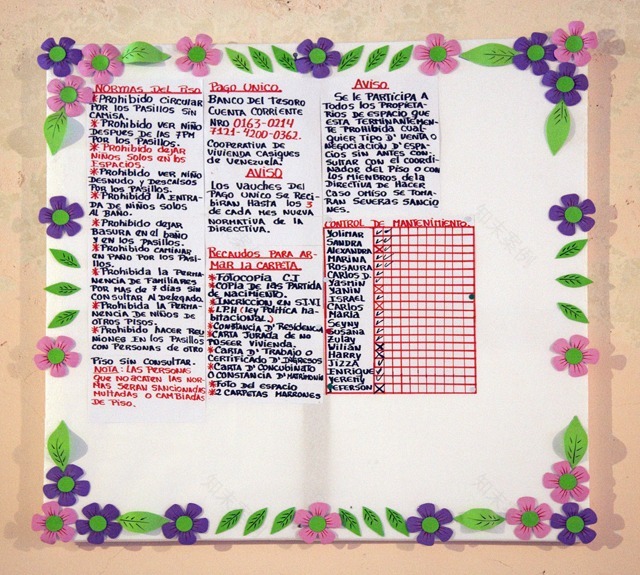 NORMAS DEL PISO
*PROHIBIDO CIRCULAR
POR LOS PASILLOS SIN
CAMISA.
*PROHIBIDO VER NIÑO
DESPUES DE LAS 7PM
POR LOS PASILLOS.
*PROHIBIDO DEJAR
NIÑOS SOLOS EN LOS
ESPACIOS.
*PROHIBIDO VER NIÑOS
DESNUDO Y DESCALSOS
POR LOS PASILLOS.
*PROHIBIDO LA ENTRA-
DA DE NIÑOS SOLOS
AL BAÑO.
*PROHIBIDO DEJAR
BASURA EN EL BAÑO
Y EN LOS PASILLOS.
*PROHIBIDO CAMINAR
EN PAÑO POR LOS PASI-
LLOS.
*PROHIBIDA LA PERMA-
NENCIA DE FAMILIARES
POR MAS DE 7 DIAS SIN
CONSULTAR AL DELEGADO.
*PROHIBIDA LA PERMA-
NENCIA DE NIÑOS DE
OTROS PISOS.
*PROHIBIDO HACER REU
NIONES EN LOS PASILLOS
CON PERSONAS DE OTRO
PISO SIN CONSULTAR.
NOTA: LAS PERSONAS
QUE NO ACATEN LAS NOR-
MAS SERAN SANCIONADAS
MULTADAS O CAMBIADAS
DE PISO.
PAGO UNICO.
BANCO DEL TESORO
CUENTA CORRIENTE
NRO 0163-0214
7121-4200-0362.
COOPERATIVA DE
VIVIENDA CASIQUES
DE VENEZUELA.
AVISO
LOS VAUCHES DEL
PAGO UNICO SE RECI-
BIRAN HASTA LOS 5
DE CADA MES NUEVA
NORMATIVA DE LA
DIRECCTIVA.
RECAUDOS PARA AR-
MAR LA CARPETA.
*FOTOCOPIA C.I
*COPIA DE LAS PARTIDA
DE NACIMIENTO.
*INCRCCION EN SIVI
*L.P.H (LEY POLITICA HA-
BITACIONAL)
*CONSTANCIA D' RESIDENCIA
*CARTA JURADA DE NO
POSEER VIVIENDA.
*CARTA D' TRABAJO O
CERTIFICADO D' INGRESOS
*CARTA D' CONCUBINATO
O CONSTANCIA D' MATRIMONIO
*FOTO DEL ESPACIO
*2 CARPETAS MARRONES
AVISO
SE LE PARTICIPA A
TODOS LOS PROPIETA-
RIOS DE ESPACIO QUE
ESTA TERMINANTEMEN-
TE PROHIBIDA CUAL-
QUIER TIPO D' VENTA O
NEGOCIACION D' ESPA-
CIOS SIN ANTES CON-
SULTAR CON EL COORDI-
NADOR DEL PISO O CON
LOS MIENBROS DE LA
DIRECTIVA DE HACER
CASO OMISO SE TOMA-
RAN SEVERAS SANCIO
NES.
CONTROL DE MANTENIMIENTO.
YOLIMAR
SANDRA
ALEXANDRA
MARINA
ROSAURA
CARLOS D.
YASMIN
YANIN
ISRAEL
CARLOS
MARIA
SEYNY
SUSANA
ZULAY
LILIAN
HARRY
TIZZA
ENRIQUE
YERENY
JEFERSON